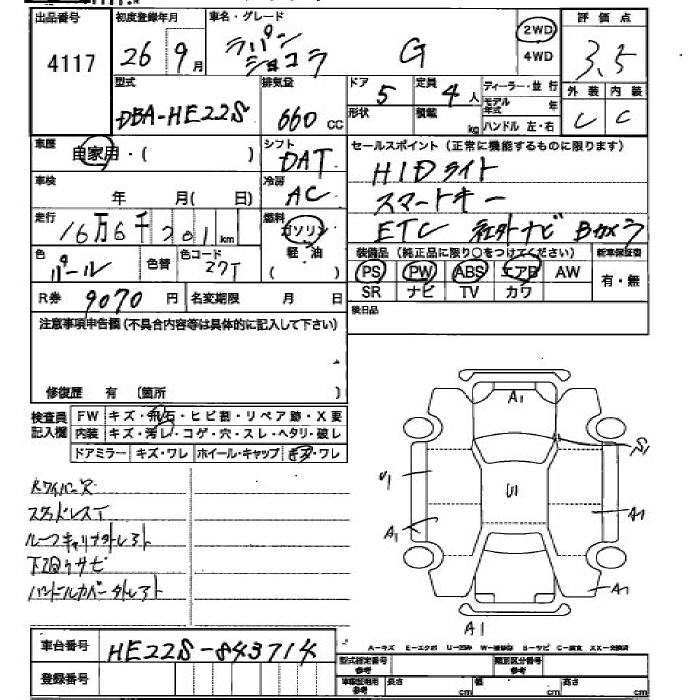 出品番号 初度登録年月 車名・グレード 評価点
4117 26年 9月 ラパン ショコラ G 2WD 4WD 3.5
外装 内装
C C
型式 排気量 ドア 定員 ディーラー・並行
DBA-HE22S 660cc 5 4人 モデル年式 年
形状 積載 kg ハンドル 左・右
車歴 自家用・( ) シフト DAT セールスポイント(正常に機能するものに限ります)
HIDライト
車検 年 月( 日) 冷房 AC スマートキー
走行 16万6千201km 燃料 ガソリン 軽油 ( ) ETC 社外ナビ Bカメラ
色 パール 色替 色コード Z7T 装備品(純正品に限り○をつけてください) 新車保証書
PS PW ABS エアB AW 有・無
R券 9070円 名変期限 月 日 SR ナビ TV カワ
注意事項申告欄(不具合内容等は具体的に記入して下さい) 後日品
修復歴 有 〔箇所 〕
検査員記入欄 FW キズ・飛石・ヒビ割・リペア跡・X要
内装 キズ・汚れ・コゲ・穴・スレ・ヘタリ・破レ
ドアミラー キズ・ワレ ホイール・キャップ キズ・ワレ
A1
S1
U1 U1
A1 A1
A1
A1
スタッドレスT
ルーフキャリア外レアト
下廻りサビ
ハンドルカバー外レアト
A-キズ E-エクボ U-凹み W-補修跡 B-サビ C-腐食 XX-交換済
車台番号 HE22S-843714 型式指定番号 参考 類別区分番号 参考
登録番号 車検証明用 参考 長さ cm 幅 cm 高さ cm